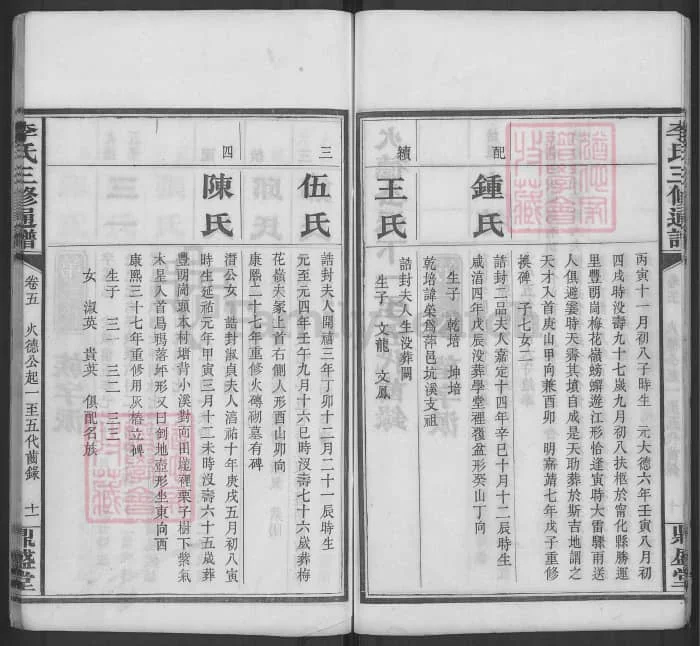 李氏三修通譜
鼎盛堂
丙寅十一月初八子時生　元大德六年壬寅八月初
四戌時沒壽九十七歲九月初八扶柩於甯化縣勝運
里豐朗崗梅花嶺螃蠏遊江形恰逢寅時大雷驟雨送
人俱避宴時天霽其墳自成是天助葬於斯吉地謂之
天才人首庚山甲向兼酉卯　明嘉靖七年戊子重修
換碑　子七女二
配
鍾氏
誥封二品夫人嘉定十四年辛巳十月十二辰時生
咸淳四年戊辰沒葬學堂裡覆盆形癸山丁向
生子　乾培　坤培
乾培諱榮爲萍邑坑溪支祖
續
王氏
誥封夫人生沒葬闕
生子　文龍　文鳳
三
伍氏
誥封夫人開禧三年丁卯十二月二十一辰時生
元至元四年壬午九月十六巳時沒壽七十六歲葬梅
花嶽夫冢上首右側人形酉山卯向
康熙二十七年重修火磚砌墓有碑
四
陳氏
潛公女　誥封淑貞夫人淳祐十年庚戌五月初八寅
時生延祐元年甲寅三月十二未時沒壽六十五歲葬
豐朗崗頭本村墻背小溪對向田墘裡栗子樹下紫氣
木星人首烏鴉落垪形又曰倒地壺形坐東向西
康熙三十七年重修用灰樁立碑
生子　三一　三二　三三
女　淑英　貴英　俱配名族
李氏三修通譜
卷五　火德公起一至五代齒錄
十一
鼎盛堂